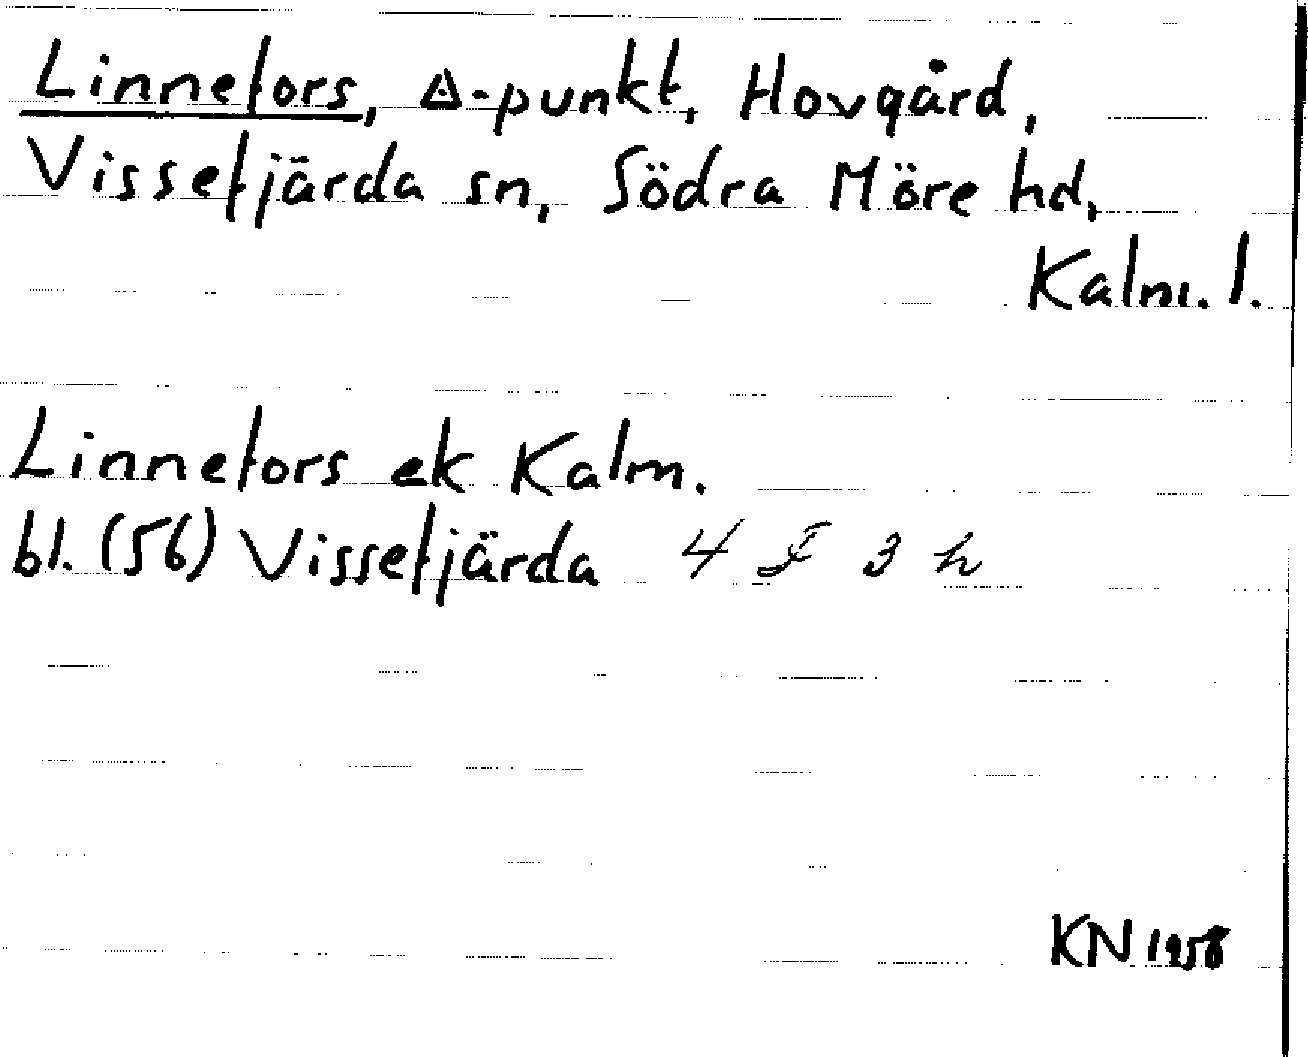 Linnefors, △-punkt, Hovgård,
Vissefjärda sn, Södra Möre hd,
Kalm. l.
Linnefors ek Kalm.
bl. (56) Vissefjärda 4 F 3 h
KN 1958